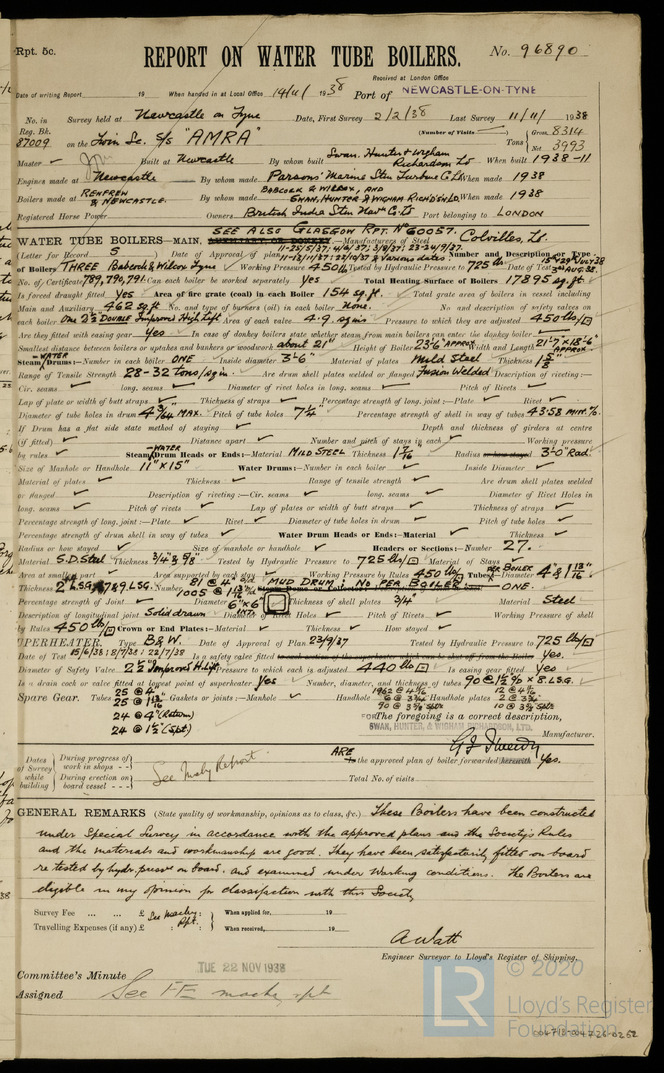 Rpt. 5c.
REPORT ON WATER TUBE BOILERS.
No. 96890
Received at London Office
Date of writing Report 19 When handed in at Local Office 14/11/ 1938 Port of NEWCASTLE-ON-TYNE
No. in Survey held at Newcastle on Tyne Date, First Survey 2/2/38 Last Survey 11/11/ 1938
Reg. Bk. (Number of Visits
87009 on the Twin Sc. S/S "AMRA" Tons Gross 8314 Net 3993
Master Built at Newcastle By whom built Swan, Hunter & Wigham Richardson Ld When built 1938-11
Engines made at Newcastle By whom made Parsons' Marine Stm Turbine Co Ld When made 1938
Boilers made at RENFREW & NEWCASTLE. By whom made BABCOCK & WILCOX, AND SWAN, HUNTER & WIGHAM RICHDSN LD. When made 1938
Registered Horse Power Owners British India Stm Navn Co Ld Port belonging to LONDON
SEE ALSO GLASGOW RPT. No 60057.
WATER TUBE BOILERS—MAIN, Manufacturers of Steel Colvilles, Ld.
(Letter for Record S ) Date of Approval of plan Number and Description or Type
of Boilers THREE Babcock & Wilcox Type Working Pressure 450 lb Tested by Hydraulic Pressure to 725 lb Date of Test
No. of Certificate 789, 790, 791. Can each boiler be worked separately Yes Total Heating Surface of Boilers 17895 sq. ft
Is forced draught fitted Yes Area of fire grate (coal) in each Boiler 154 sq. ft. Total grate area of boilers in vessel including
Main and Auxiliary 462 sq. ft No. and type of burners (oil) in each boiler None. No. and description of safety valves on
each boiler One 2½" Double Improved High Lift Area of each valve 4.9 sq ins Pressure to which they are adjusted 450 lb/□
Are they fitted with easing gear Yes In case of donkey boilers state whether steam from main boilers can enter the donkey boiler
Smallest distance between boilers or uptakes and bunkers or woodwork about 21" Height of Boiler 23'-6" APPROX. Width and Length 21'-7" x 18'-6" APPROX.
Steam & WATER Drums:—Number in each boiler ONE Inside diameter 3'-6" Material of plates Mild Steel Thickness
Range of Tensile Strength 28-32 tons/sq in. Are drum shell plates welded or flanged Fusion Welded Description of riveting:—
Cir. seams long. seams Diameter of rivet holes in long. seams Pitch of Rivets
Lap of plate or width of butt straps Thickness of straps Percentage strength of long. joint:—Plate Rivet
Diameter of tube holes in drum 4 3/64" MAX. Pitch of tube holes 7¼" Percentage strength of shell in way of tubes 43.58 MIN. %.
If Drum has a flat side state method of staying Depth and thickness of girders at centre
(if fitted) Distance apart Number and pitch of stays in each Working pressure
by rules Steam & WATER Drum Heads or Ends:—Material MILD STEEL Thickness Radius 3'-0" Rad.
Size of Manhole or Handhole 11" x 15" Water Drums:—Number in each boiler Inside Diameter
Material of plates Thickness Range of tensile strength Are drum shell plates welded
or flanged Description of riveting:—Cir. seams long. seams Diameter of Rivet Holes in
long. seams Pitch of rivets Lap of plates or width of butt straps Thickness of straps
Percentage strength of long. joint:—Plate Rivet Diameter of tube holes in drum Pitch of tube holes
Percentage strength of drum shell in way of tubes Water Drum Heads or Ends:—Material Thickness
Radius or how stayed Size of manhole or handhole Headers or Sections:—Number 27.
Material S.D. Steel Thickness 3/4" & 5/8" Tested by Hydraulic Pressure to 725 lb/□ Material of Stays
Area at smallest part Area supported by each stay Working Pressure by Rules 450 lb/□ Tubes: PER BOILER Diameter 4 & 1 13/16"
Thickness Number MUD DRUM: PER BOILER ONE.
Percentage strength of Joint Diameter 6" x 6" □ Thickness of shell plates 3/4" Material Steel
Description of longitudinal joint Solid drawn Diameter of Rivet Holes Pitch of Rivets Working Pressure of shell
by Rules 450 lb/□ Crown or End Plates:—Material Thickness How stayed
SUPERHEATER. Type B & W. Date of Approval of Plan 23/9/37 Tested by Hydraulic Pressure to 725 lb/□
Date of Test 15/6/38: 8/7/38: 22/7/38 Is a safety valve fitted Yes.
Diameter of Safety Valve 2½" Improved H. Lift Pressure to which each is adjusted 440 lb/□ Is easing gear fitted Yes
Is a drain cock or valve fitted at lowest point of superheater Yes Number, diameter, and thickness of tubes 90 @ 1½" O/D x 8 L.S.G.
Spare Gear. Tubes 25 @ 4" Gaskets or joints:—Manhole Handhole Handhole plates
25 @ 1 13/16"
24 @ 4" (Return)
24 @ 1½" (Spt)
The foregoing is a correct description,
FOR SWAN, HUNTER, & WIGHAM RICHARDSON, LTD.
Manufacturer.
Dates of Survey while building
During progress of work in shops - -
During erection on board vessel - - -
See Mchy Report.
ARE the approved plan of boiler forwarded herewith Yes.
Total No. of visits
GENERAL REMARKS (State quality of workmanship, opinions as to class, &c.) These Boilers have been constructed
under Special Survey in accordance with the approved plans and the Society's Rules
and the materials and workmanship are good. They have been satisfactorily fitted on board
re tested by hydr. press on board, and examined under working conditions. The Boilers are
eligible in my opinion for classification with this Society
Survey Fee ... ... £ See Machy Rpt. When applied for, 19
Travelling Expenses (if any) £ When received, 19
A Watt
Engineer Surveyor to Lloyd's Register of Shipping.
Committee's Minute TUE 22 NOV 1938
Assigned See F.E. machy rpt
LR
© 2020
Lloyd's Register
Foundation
004718-004726-0252